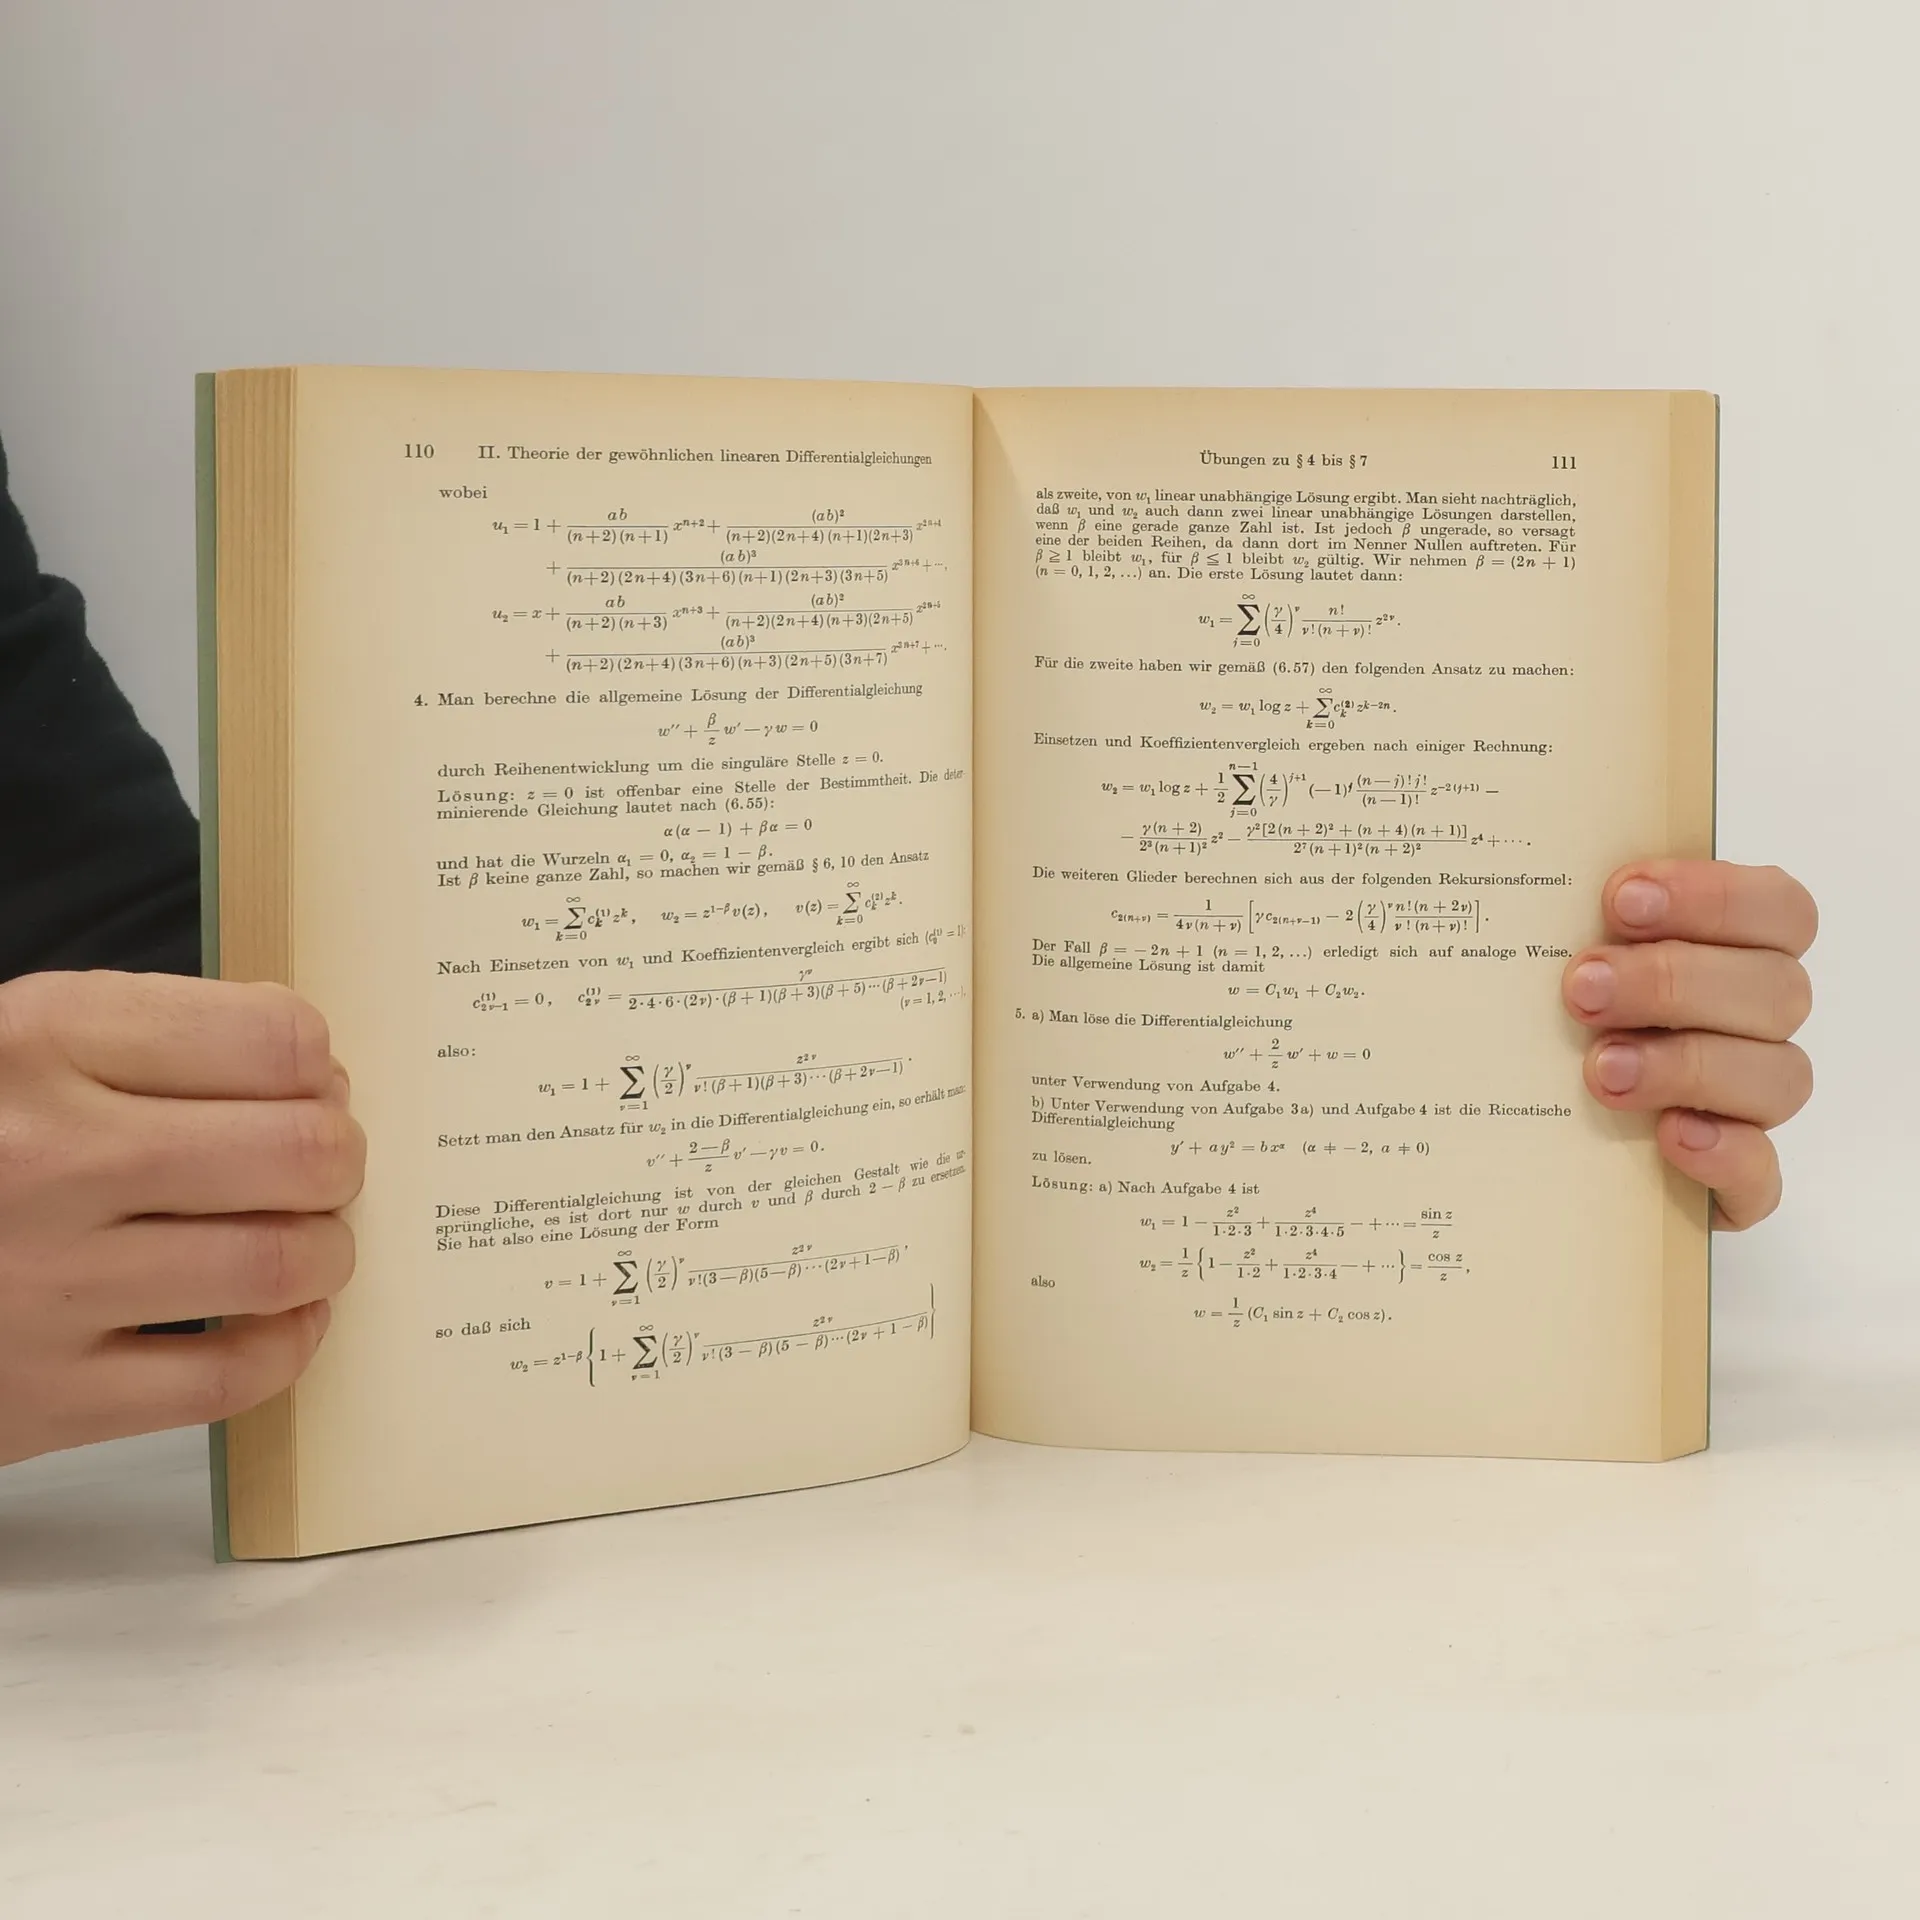 110 II. Theorie der gewöhnlichen linearen Differentialgleichungen
wobei
u₁ = 1 + ab/((n+2)(n+1)) xⁿ⁺² + (ab)²/((n+2)(2n+4)(n+1)(2n+3)) x²ⁿ⁺⁴
+ (ab)³/((n+2)(2n+4)(3n+6)(n+1)(2n+3)(3n+5)) x³ⁿ⁺⁶ + ···,
u₂ = x + ab/((n+2)(n+3)) xⁿ⁺³ + (ab)²/((n+2)(2n+4)(n+3)(2n+5)) x²ⁿ⁺⁵
+ (ab)³/((n+2)(2n+4)(3n+6)(n+3)(2n+5)(3n+7)) x³ⁿ⁺⁷ + ···.
4. Man berechne die allgemeine Lösung der Differentialgleichung
w″ + β/z w′ − γw = 0
durch Reihenentwicklung um die singuläre Stelle z = 0.
Lösung: z = 0 ist offenbar eine Stelle der Bestimmtheit. Die deter-
minierende Gleichung lautet nach (6.55):
α(α − 1) + βα = 0
und hat die Wurzeln α₁ = 0, α₂ = 1 − β.
Ist β keine ganze Zahl, so machen wir gemäß § 6, 10 den Ansatz
w₁ = ∑_{k=0}^{∞} c_k^{(1)} z^k, w₂ = z^{1−β} v(z), v(z) = ∑_{k=0}^{∞} c_k^{(2)} z^k.
Nach Einsetzen von w₁ und Koeffizientenvergleich ergibt sich (c_0^{(1)} = 1):
c_{2ν−1}^{(1)} = 0, c_{2ν}^{(1)} = γ^ν/(2·4·6·(2ν)·(β+1)(β+3)(β+5)···(β+2ν−1))
(ν = 1, 2, ···),
also:
w₁ = 1 + ∑_{ν=1}^{∞} (γ/2)^ν z^{2ν}/(ν!(β+1)(β+3)···(β+2ν−1)).
Setzt man den Ansatz für w₂ in die Differentialgleichung ein, so erhält man:
v″ + (2−β)/z v′ − γv = 0.
Diese Differentialgleichung ist von der gleichen Gestalt wie die ur-
sprüngliche, es ist dort nur w durch v und β durch 2 − β zu ersetzen.
Sie hat also eine Lösung der Form
v = 1 + ∑_{ν=1}^{∞} (γ/2)^ν z^{2ν}/(ν!(3−β)(5−β)···(2ν+1−β)),
so daß sich
w₂ = z^{1−β} {1 + ∑_{ν=1}^{∞} (γ/2)^ν z^{2ν}/(ν!(3 − β)(5 − β)···(2ν + 1 − β))}
Übungen zu § 4 bis § 7 111
als zweite, von w₁ linear unabhängige Lösung ergibt. Man sieht nachträglich,
daß w₁ und w₂ auch dann zwei linear unabhängige Lösungen darstellen,
wenn β eine gerade ganze Zahl ist. Ist jedoch β ungerade, so versagt
eine der beiden Reihen, da dann dort im Nenner Nullen auftreten. Für
β ≧ 1 bleibt w₁, für β ≦ 1 bleibt w₂ gültig. Wir nehmen β = (2n + 1)
(n = 0, 1, 2, ...) an. Die erste Lösung lautet dann:
w₁ = ∑_{j=0}^{∞} (γ/4)^ν n!/(ν!(n + ν)!) z^{2ν}.
Für die zweite haben wir gemäß (6.57) den folgenden Ansatz zu machen:
w₂ = w₁ log z + ∑_{k=0}^{∞} c_k^{(2)} z^{k−2n}.
Einsetzen und Koeffizientenvergleich ergeben nach einiger Rechnung:
w₂ = w₁ log z + 1/2 ∑_{j=0}^{n−1} (4/γ)^{j+1} (−1)^j (n − j)! j!/(n − 1)! z^{−2(j+1)} −
− γ(n + 2)/(2³(n + 1)²) z² − γ²[2(n + 2)² + (n + 4)(n + 1)]/(2⁷(n + 1)²(n + 2)²) z⁴ + ··· .
Die weiteren Glieder berechnen sich aus der folgenden Rekursionsformel:
c_{2(n+ν)} = 1/(4ν(n + ν)) [γc_{2(n+ν−1)} − 2 (γ/4)^ν n!(n + 2ν)/(ν!(n + ν)!)].
Der Fall β = − 2n + 1 (n = 1, 2, ...) erledigt sich auf analoge Weise.
Die allgemeine Lösung ist damit
w = C₁w₁ + C₂w₂.
5. a) Man löse die Differentialgleichung
w″ + 2/z w′ + w = 0
unter Verwendung von Aufgabe 4.
b) Unter Verwendung von Aufgabe 3a) und Aufgabe 4 ist die Riccatische
Differentialgleichung
y′ + ay² = bx^α (α ≠ − 2, a ≠ 0)
zu lösen.
Lösung: a) Nach Aufgabe 4 ist
w₁ = 1 − z²/(1·2·3) + z⁴/(1·2·3·4·5) − + ··· = sin z/z
w₂ = 1/z {1 − z²/(1·2) + z⁴/(1·2·3·4) − + ···} = cos z/z,
also
w = 1/z (C₁ sin z + C₂ cos z).